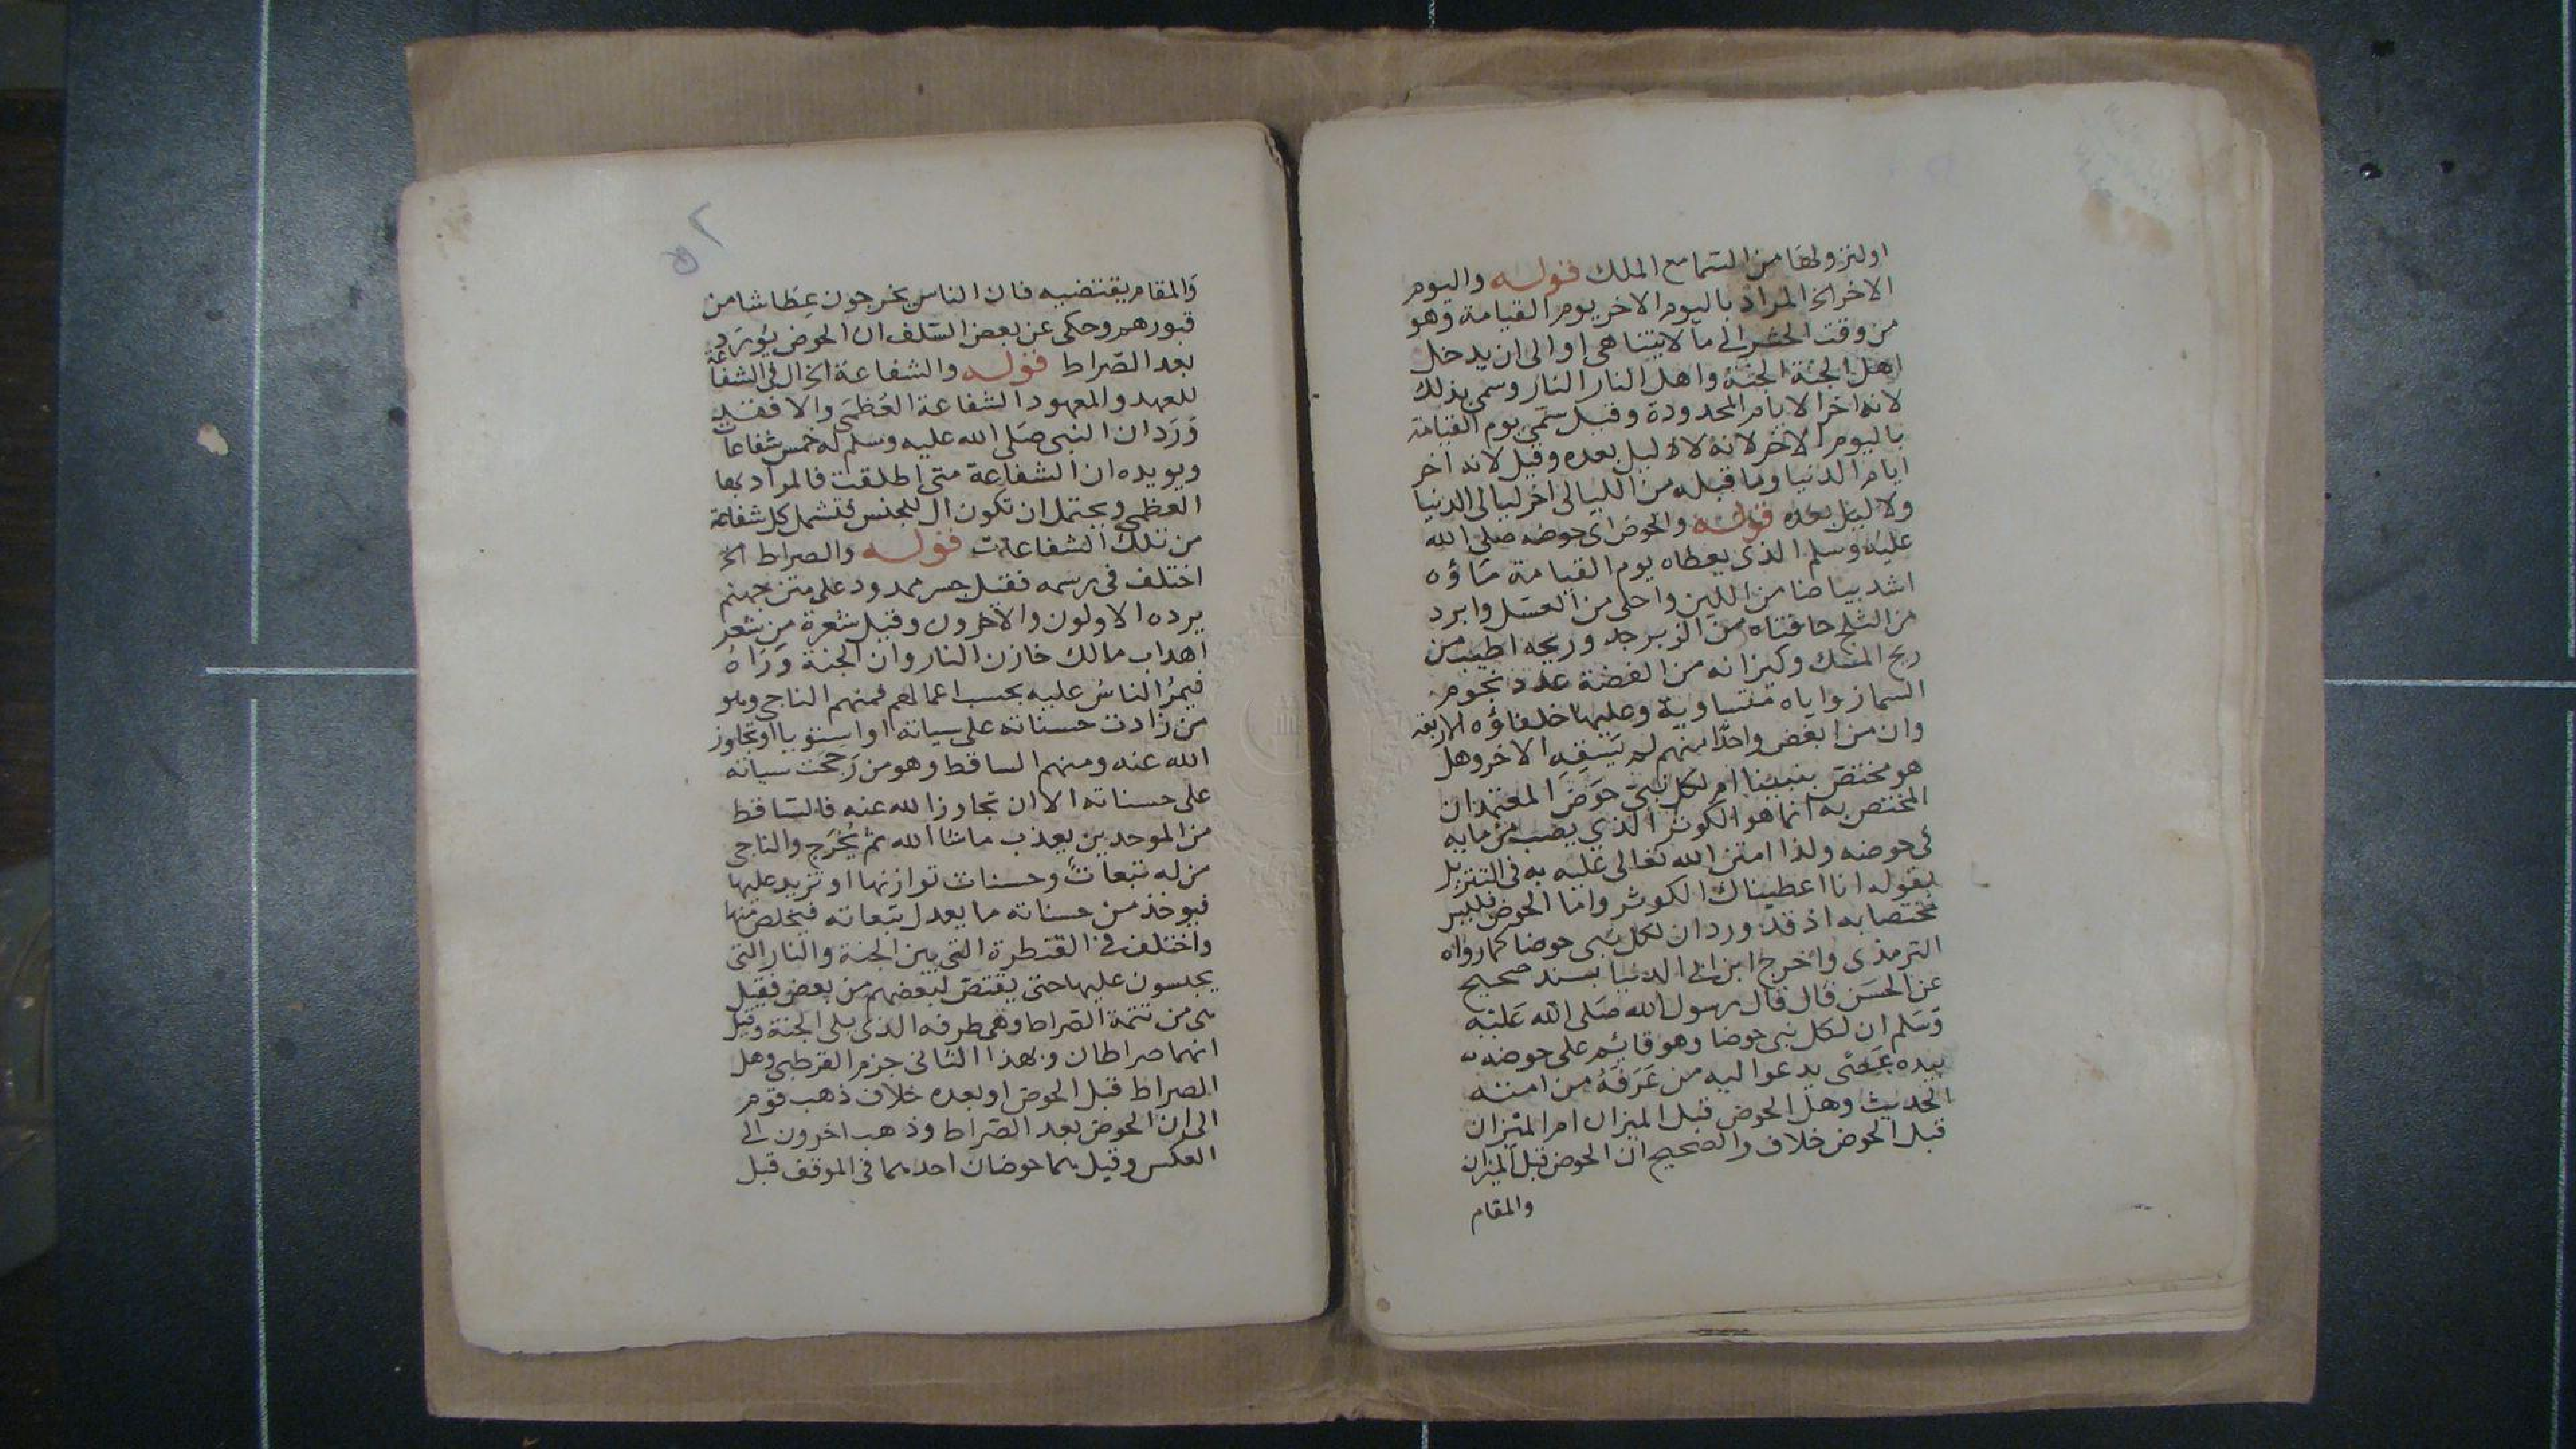 اولنزولها من السما مع الملك قوله واليوم
الاخر الخ المراد باليوم الاخر يوم القيامة وهو
من وقت الحشر الى ما لا يتناهى او الى ان يدخل
اهل الجنة الجنة واهل النار النار وسمى بذلك
لانه اخر الايام المحدودة وقيل سمى يوم القيامة
باليوم الاخر لانه لا ليل بعده وقيل لانه اخر
ايام الدنيا وما قبله من الليالى اخر ليالى الدنيا
ولا ليل بعده قوله والحوض اى حوضه صلى الله
عليه وسلم الذى يعطاه يوم القيامة ماؤه
اشد بياضا من اللبن واحلى من العسل وابرد
من الثلج حافتاه من الزبرجد وريحه اطيب من
ريح المسك وكيزانه من الفضة عدد نجوم
السما زواياه متساوية وعليها خلفاؤه الاربعة
وان من ابغض واحدا منهم لم يسقه الاخر وهل
هو مختص بنبينا ام لكل نبى حوض المعتمد ان
المختص به انما هو الكوثر الذي يصب من مايه
فى حوضه ولذا امتن الله تعالى عليه به فى التنزيل
بقوله انا اعطيناك الكوثر واما الحوض فليس
مختصا به اذ قد ورد ان لكل نبى حوضا كما رواه
الترمذى واخرج ابن ابى الدنيا بسند صحيح
عن الحسن قال قال رسول الله صلى الله عليه
وسلم ان لكل نبى حوضا وهو قايم على حوضه
بيده عصى يدعوا ليه من عرفه من امته
الحديث وهل الحوض قبل الميزان ام الميزان
قبل الحوض خلاف والصحيح ان الحوض قبل الميزان
والمقام
٥٢
والمقام يقتضيه فان الناس يخرجون عطاشا من
قبورهم وحكى عن بعض السلف ان الحوض يورد
بعد الصراط قوله والشفاعة الخ ال فى الشفاعة
للعهد والمعهود الشفاعة العظمى والا فقد
ورد ان النبى صلى الله عليه وسلم له خمس شفاعات
ويويده ان الشفاعة متى اطلقت فالمراد بها
العظمى ويحتمل ان تكون ال للجنس فتشمل كل شفاعة
من تلك الشفاعات قوله والصراط الخ
اختلف فى رسمه فقيل جسر ممدود على متن جهنم
يرده الاولون والاخرون وقيل شعرة من شعر
اهداب مالك خازن النار وان الجنة وراه
فيمر الناس عليه بحسب اعمالهم فمنهم الناجى وهو
من زادت حسناته على سياته او استويا او تجاوز
الله عنه ومنهم الساقط وهو من رجحت سياته
على حسناته الا ان تجاوز الله عنه فالساقط
من الموحدين يعذب ما شا الله ثم يخرج والناجى
من له تبعات وحسنات توازنها او تزيد عليها
فيوخذ من حسناته ما يعدل تبعاته فيخلص منها
واختلف فى القنطرة التى بين الجنة والنار التى
يجلسون عليها حتى يقتص لبعضهم من بعض فقيل
هى من تتمة الصراط وهى طرفه الذى يلى الجنة وقيل
انهما صراطان وبهذا الثانى جزم القرطبى وهل
الصراط قبل الحوض او بعده خلاف ذهب قوم
الى ان الحوض بعد الصراط وذهب اخرون الى
العكس وقيل هما حوضان احدهما فى الموقف قبل